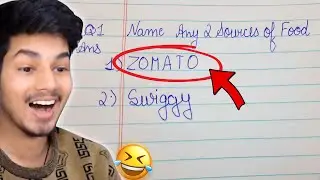 Q1 Name Any 2 Sources of Food
Ans
1) ZOMATO
2) Swiggy